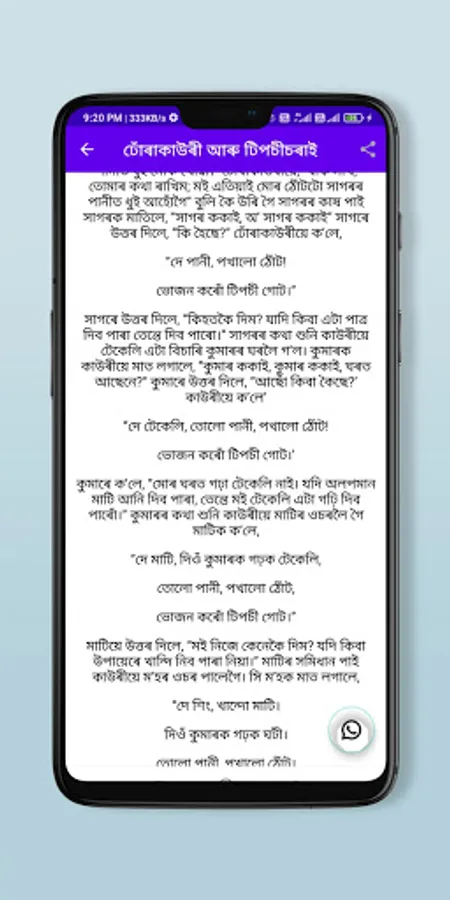 9:20 PM | 333KB/s
ঢোঁৰাকাউৰী আৰু টিপচীচৰাই
তোমাৰ কথা ৰাখিম; মই এতিয়াই মোৰ ঠোঁটটো সাগৰৰ
পানীত ধুই আহোঁগৈ" বুলি কৈ উৰি গৈ সাগৰৰ কাষ পাই
সাগৰক মাতিলে, "সাগৰ ককাই, অ' সাগৰ ককাই" সাগৰে
উত্তৰ দিলে, "কি হৈছে?" ঢোঁৰাকাউৰীয়ে ক'লে,
"দে পানী, পখালো ঠোঁট!
ভোজন কৰোঁ টিপচী গোট।"
সাগৰে উত্তৰ দিলে, "কিহতকৈ দিম? যাদি কিবা এটা পাত্ৰ
দিব পাৰা তেন্তে দিব পাৰো।" সাগৰৰ কথা শুনি কাউৰীয়ে
টেকেলি এটা বিচাৰি কুমাৰৰ ঘৰলৈ গ'ল। কুমাৰক
কাউৰীয়ে মাত লগালে, "কুমাৰ ককাই, কুমাৰ ককাই, ঘৰত
আছেনে?" কুমাৰে উত্তৰ দিলে, "আছোঁ কিবা কৈছে?'
কাউৰীয়ে ক'লে'
"দে টেকেলি, তোলো পানী, পখালো ঠোঁট!
ভোজন কৰোঁ টিপচী গোট।'
কুমাৰে ক'লে, "মোৰ ঘৰত গঢ়া টেকেলি নাই। যদি অলপমান
মাটি আনি দিব পাৰা, তেন্তে মই টেকেলি এটা গঢ়ি দিব
পাৰোঁ।" কুমাৰৰ কথা শুনি কাউৰীয়ে মাটিৰ ওচৰলৈ গৈ
মাটিক ক'লে,
"দে মাটি, দিওঁ কুমাৰক গঢ়ক টেকেলি,
তোলো পানী, পখালো ঠোঁট,
ভোজন কৰোঁ টিপচী গোট।"
মাটিয়ে উত্তৰ দিলে, "মই নিজে কেনেকৈ দিম? যদি কিবা
উপায়েৰে খান্দি নিব পাৰা নিয়া।" মাটিৰ সমিধান পাই
কাউৰীয়ে ম'হৰ ওচৰ পালেগৈ। সি ম'হক মাত লগালে,
"দে শিং, খান্দো মাটি।
দিওঁ কুমাৰক গঢ়ক ঘটী।
তোলো পানী, পখালো ঠোঁট।